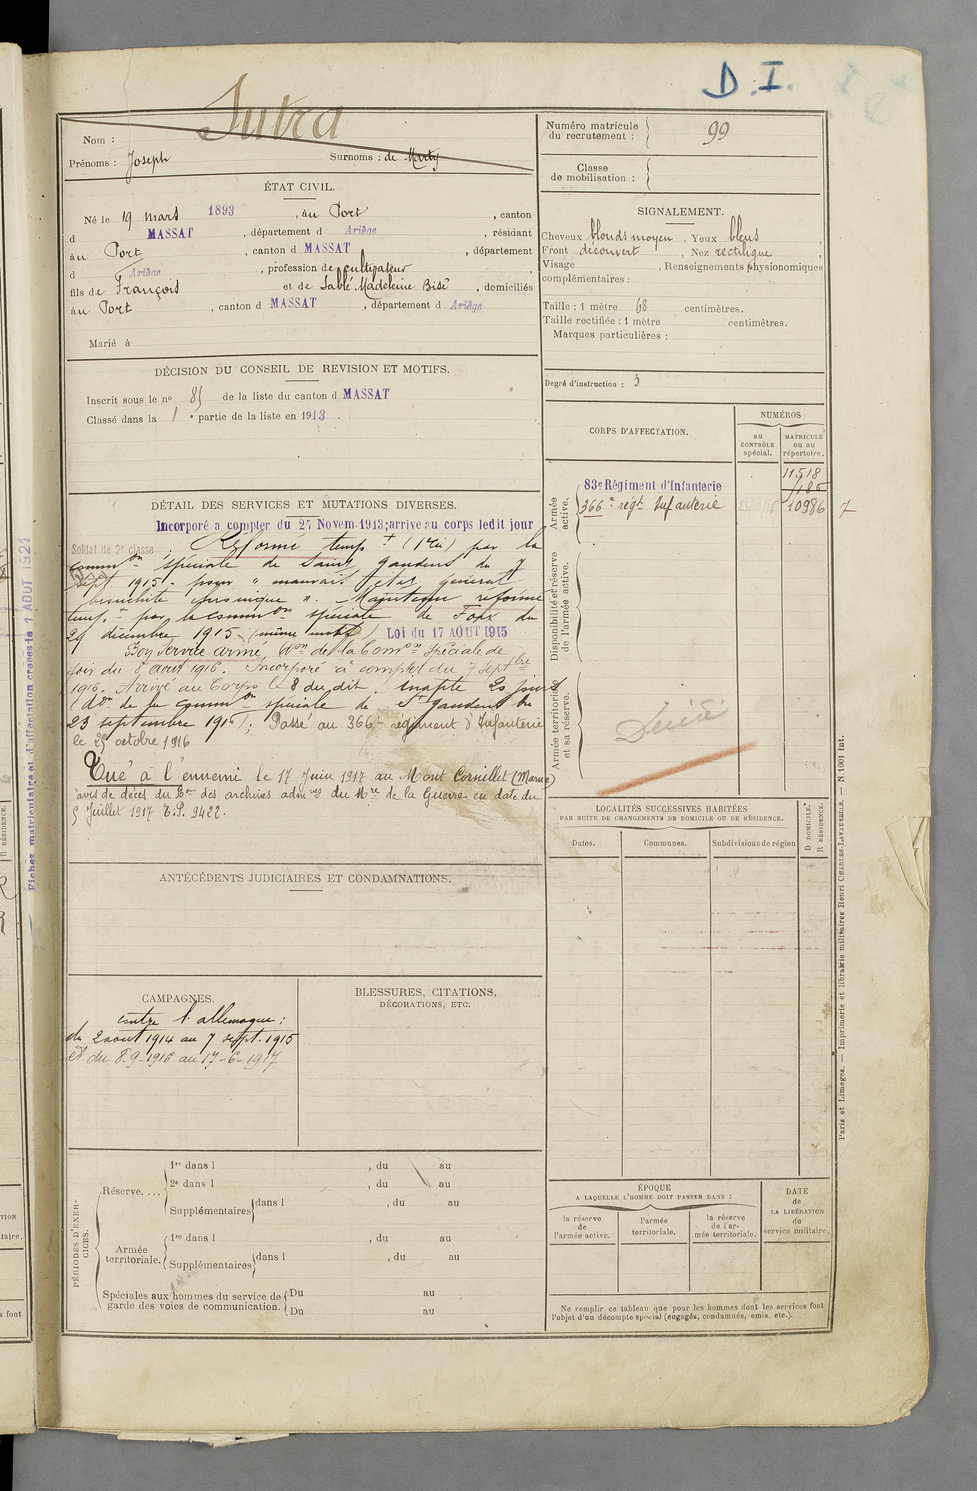 D. I.
Jutra
Nom :
Prénoms : Joseph Surnoms : de Marty
ÉTAT CIVIL.
Né le 19 mars 1893, au Port, canton
d MASSAT, département d Ariège, résidant
au Port, canton d MASSAT, département
d Ariège, profession de cultivateur,
fils de François et de Sablé Madeleine Bise, domiciliés
au Port, canton d MASSAT, département d Ariège
Marié à
DÉCISION DU CONSEIL DE REVISION ET MOTIFS.
Inscrit sous le no 85 de la liste du canton d MASSAT
Classé dans la 1e partie de la liste en 1913.
DÉTAIL DES SERVICES ET MUTATIONS DIVERSES.
Incorporé a compter du 27 Novem.1913; arrive au corps ledit jour
Soldat de 2e classe. Réformé temp.t (1re) par la
comm.on spéciale de Saint Gaudens du 7
Sept 1915 - pour " mauvais état général
bronchite chronique ". Maintenu réformé
temp.t par la comm.on spéciale de Foix du
29 décembre 1915 (même motif) Loi du 17 AOUT 1915
Bon service armé, d.on de la Com.on spéciale de
foix du 8 août 1916. Incorporé à compter du 7 Septbre
1916. Arrivé au Corps le 8 du dit. inapte 20 jours
(d.on de la comm.on spéciale de St Gaudens du
23 septembre 1916); Passé au 366e régiment d'Infanterie
le 25 octobre 1916
Tué à l'ennemi le 17 Juin 1917 au Mont Cornillet (Marne)
avis de décès du Bau des archives admves du Mre de la Guerre en date du
5 Juillet 1917 E.P. 9422.
ANTÉCÉDENTS JUDICIAIRES ET CONDAMNATIONS.
CAMPAGNES.
contre l'allemagne :
du 2 aout 1914 au 7 sept. 1915
et du 8-9-1916 au 17-6-1917
BLESSURES, CITATIONS,
DÉCORATIONS, ETC.
PÉRIODES D'EXERCICES.
Réserve....
1re dans l , du au
2e dans l , du au
Supplémentaires dans l , du au
Armée territoriale.
1re dans l , du au
Supplémentaires dans l , du au
Spéciales aux hommes du service de Du au
garde des voies de communication. Du au
Numéro matricule
du recrutement : 99
Classe
de mobilisation :
SIGNALEMENT.
Cheveux blonds moyen, Yeux bleus,
Front découvert, Nez rectiligne,
Visage , Renseignements physionomiques
complémentaires :
Taille : 1 mètre 68 centimètres.
Taille rectifiée : 1 mètre centimètres.
Marques particulières :
Degré d'instruction : 3
CORPS D'AFFECTATION.
NUMÉROS
au
CONTRÔLE
spécial.
MATRICULE
ou au
répertoire.
Armée active.
11518
83e Régiment d'Infanterie
366e régt Infanterie 10986
Disponibilité et réserve de l'armée active.
Armée territoriale et sa réserve.
Décédé
LOCALITÉS SUCCESSIVES HABITÉES
PAR SUITE DE CHANGEMENTS DE DOMICILE OU DE RÉSIDENCE.
Dates. Communes. Subdivisions de région
D DOMICILE.
R RÉSIDENCE.
ÉPOQUE
A LAQUELLE L'HOMME DOIT PASSER DANS :
la réserve
de
l'armée active.
l'armée
territoriale.
la réserve
de l'ar-
mée territoriale.
DATE
de
LA LIBÉRATION
du
service militaire.
Ne remplir ce tableau que pour les hommes dont les services font
l'objet d'un décompte spécial (engagés, condamnés, omis, etc.).
Paris et Limoges. — Imprimerie et librairie militaires Henri CHARLES-LAVAUZELLE. — N. 1001 int.
Fiches matriculaire et d'affectation créées le 1 AOUT 1921
R RÉSIDENCE.